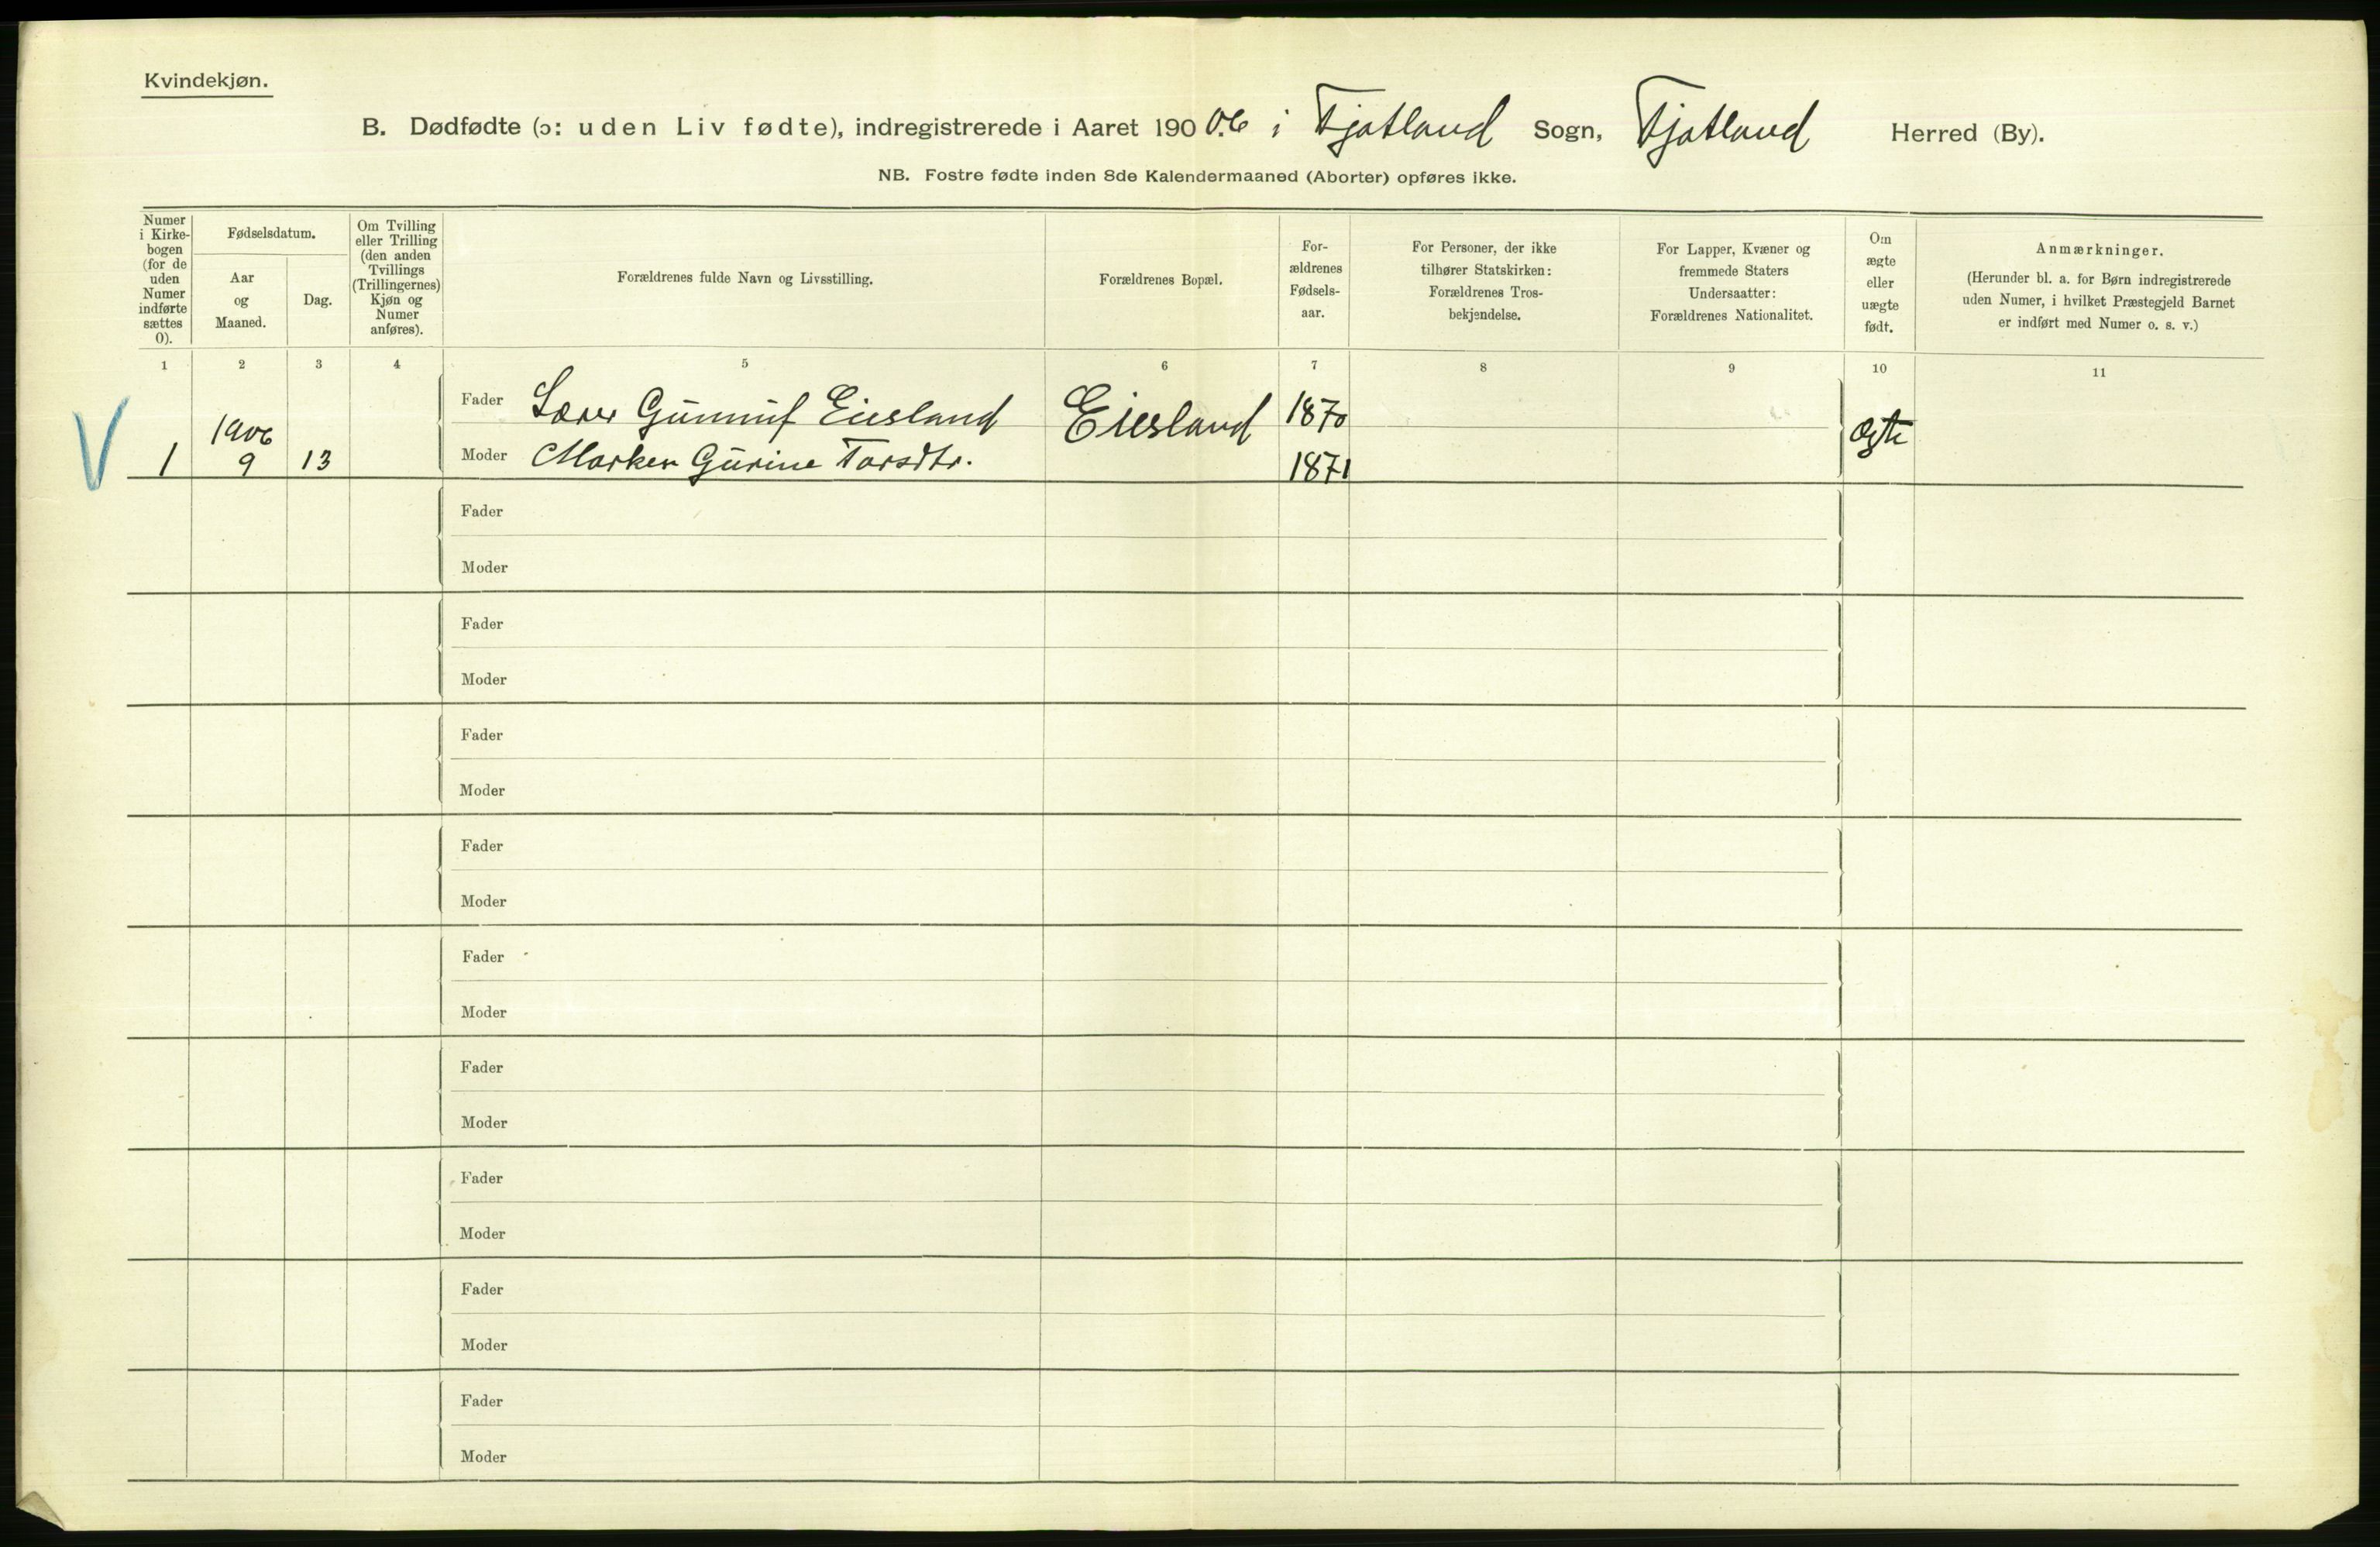 Kvindekjøn.
B. Dødfødte (ɔ: uden Liv fødte), indregistrerede i Aaret 190 06 i Fjotland Sogn, Fjotland Herred (By).
NB. Fostre fødte inden 8de Kalendermaaned (Aborter) opføres ikke.
Numer
i Kirke-
bogen
(for de
uden
Numer
indførte
sættes
0).
Fødselsdatum.
Aar
og
Maaned.
Dag.
Om Tvilling
eller Trilling
(den anden
Tvillings
(Trillingernes)
Kjøn og
Numer
anføres).
Forældrenes fulde Navn og Livsstilling.
Forældrenes Bopæl.
For-
ældrenes
Fødsels-
aar.
For Personer, der ikke
tilhører Statskirken:
Forældrenes Tros-
bekjendelse.
For Lapper, Kvæner og
fremmede Staters
Undersaatter:
Forældrenes Nationalitet.
Om
ægte
eller
uægte
født.
Anmærkninger.
(Herunder bl. a. for Børn indregistrerede
uden Numer, i hvilket Præstegjeld Barnet
er indført med Numer o. s. v.)
1 2 3 4 5 6 7 8 9 10 11
V
1
1906
9
13
Fader Lærer Gunnuf Eiesland
Moder Marken Gurine Tarsdtr.
Eiesland
1870
1871
Ægte
Fader
Moder
Fader
Moder
Fader
Moder
Fader
Moder
Fader
Moder
Fader
Moder
Fader
Moder
Fader
Moder
Fader
Moder